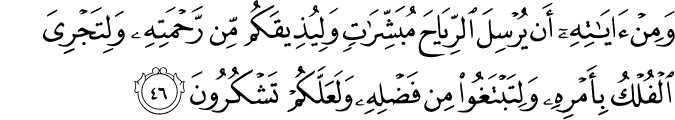 وَمِنۡ ءَايَٰتِهِۦٓ أَن يُرۡسِلَ ٱلرِّيَاحَ مُبَشِّرَٰتٖ وَلِيُذِيقَكُم مِّن رَّحۡمَتِهِۦ وَلِتَجۡرِيَ
ٱلۡفُلۡكُ بِأَمۡرِهِۦ وَلِتَبۡتَغُواْ مِن فَضۡلِهِۦ وَلَعَلَّكُمۡ تَشۡكُرُونَ ٤٦